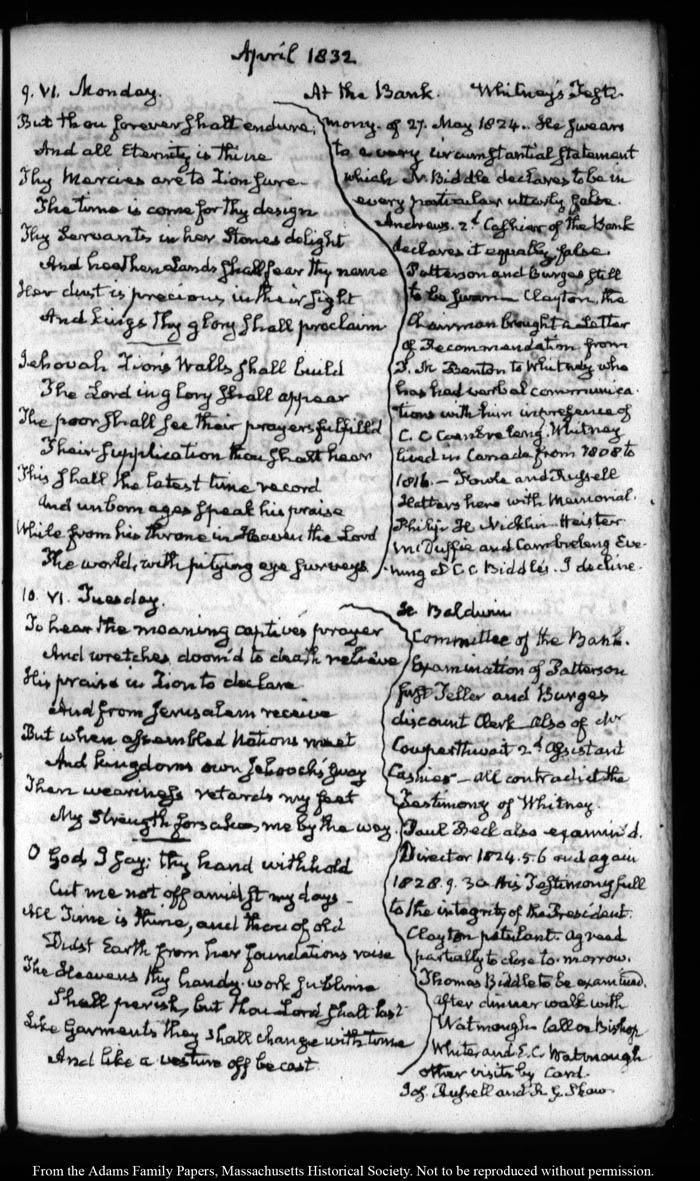 April 1832
9. VI. Monday.
But thou forever shalt endure,
And all Eternity is thine
Thy Mercies are to Zion sure
The time is come for thy design
Thy Servants in her Stones delight
And heathen Lands shall fear thy name
Her dust is precious in their sight
And kings thy glory shall proclaim
Jehovah Zion's Walls shall build
The Lord in glory shall appear
The poor shall see their prayers fulfill'd
Their supplication thou shalt hear
This shall the latest time record
And unborn ages speak his praise
While from his throne in Heaven the Lord
The world, with pitying eye surveys
At the Bank. Whitney's Testi-
mony. of 27. May 1824. He swears
to a very circumstantial statement
which N. Biddle declares to be in
every particular utterly false.
Andrews. 2d. Cashier of the Bank
declares it equally false.
Patterson and Burges still
to be sworn Clayton, the
Chairman brought a Letter
of Recommendation from
T. H. Benton to Whitney who
has had verbal communica-
tions with him in presence of
C. C. Cambreleng. Whitney
lived in Canada from 1808 to
1816. — Fowle and Russell
Hatters here with Memorial.
Philip H. Nicklin Heister
McDuffie and Cambreleng Eve-
ning at C. C. Biddle's. I decline.
10. VI. Tuesday.
To hear the moaning captive's prayer
And wretches doom'd to death relieve
His praise in Zion to declare
And from Jerusalem receive
But when assembled Nations meet
And kingdoms own Jehovah's sway
Then weariness retards my feet
My Strength forsakes me by the way.
O God, I say: thy hand withhold
Cut me not off amidst my days
All Time is thine, and thou of old
Didst Earth from her foundations raise
The Heavens thy handy-work sublime
Shall perish, but thou Lord shalt last
Like Garments they shall change with time
And like a vesture off be cast.
H. Baldwin
Committee of the Bank.
Examination of Patterson
first Teller and Burges
discount Clerk also of Mr
Cowperthwait 2d Assistant
Cashier — all contradict the
Testimony of Whitney.
Paul Beck also examin'd.
Director 1824. 5 6 and again
1828. 9. 30 his Testimony full
to the integrity of the President.
Clayton petulant. agreed
partially to close to-morrow.
Thomas Biddle to be examined.
After dinner walk with
Watmough. Call on Bishop
White and E. C. Watmough
other visits by Card.
Jos. Russell and R G Shaw.
From the Adams Family Papers, Massachusetts Historical Society. Not to be reproduced without permission.